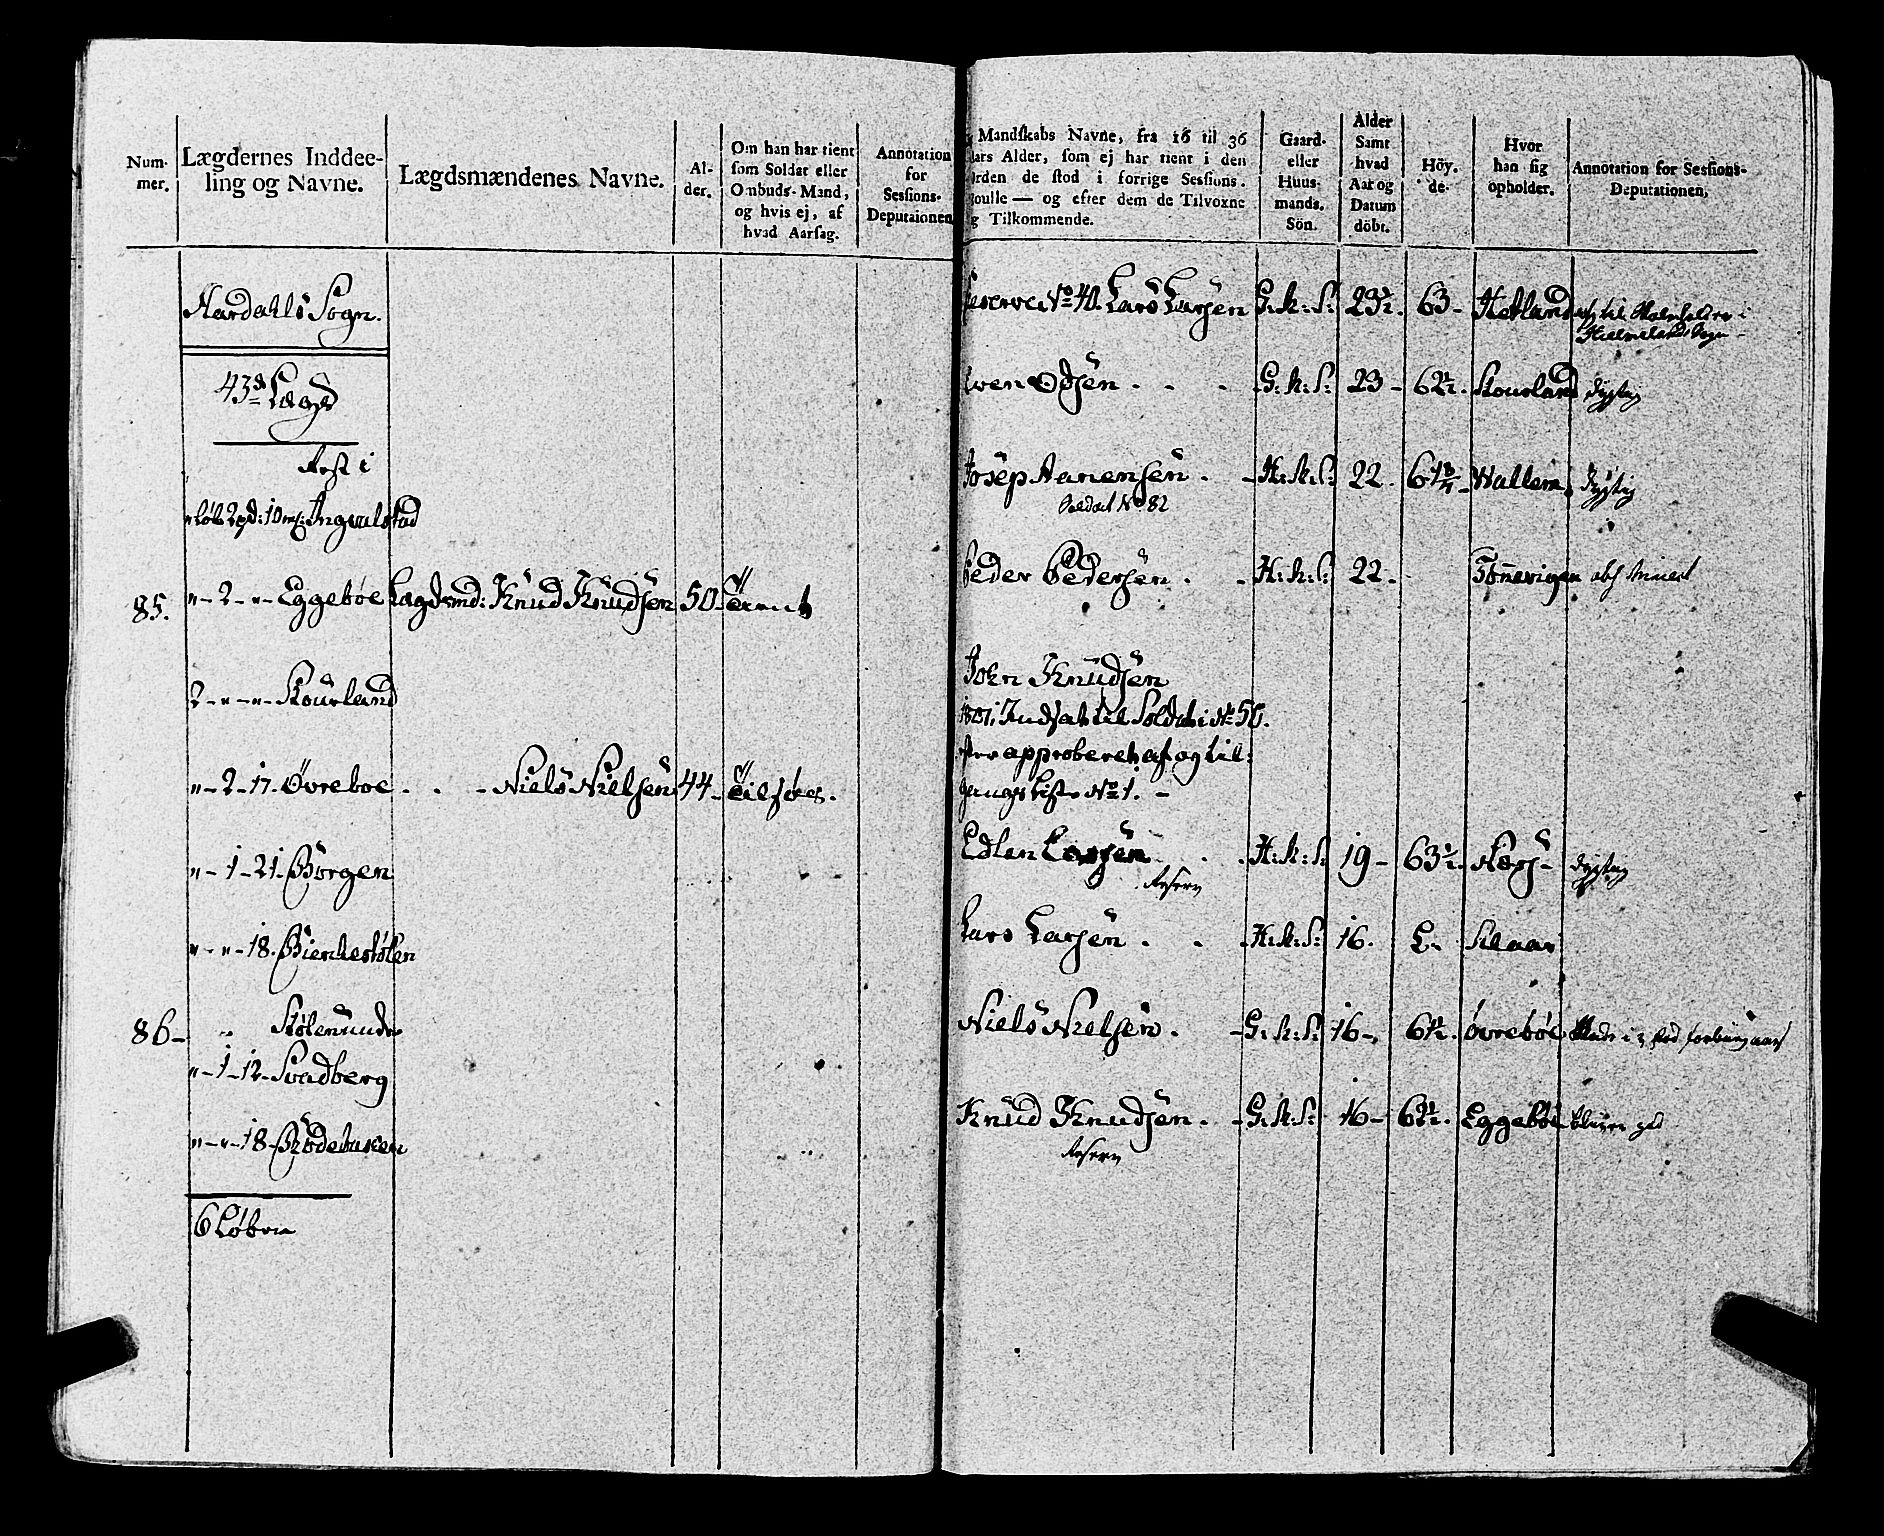 Num-
mer.
Lægdernes Inddee-
ling og Navne.
Lægdsmændenes Navne.
Al-
der.
Om han har tient
som Soldat eller
Ombuds-Mand,
og hvis ej, af
hvad Aarsag.
Annotation
for
Sessions-
Deputationen
Aardahls Sogn.
43de Lægd
Rest i
" Løb 2 pd: 10 mk: Ingvalstad
85. " - 2 - " - Eggebøe Lægdsmd: Knud Knudsen 50
2 - " - " - Skourland
" - 2 - 17. Øvreboe . . - Niels Nielsen 44 -
" - 1 - 21. Børgen
" - " - 18. Bierkestølen
86 - " Stølerunde
" - 1 - 12 - Svadberg
" - " - 18 -
6 Løber
Mandskabs Navne, fra 16 til 36
Aars Alder, som ej har tient i den
Orden de stod i forrige Sessions-
Roulle — og efter dem de Tilvoxne
og Tilkommende.
Gaard-
eller
Huus-
mands.
Sön.
Alder
Samt
hvad
Aar og
Datum
döbt.
Höy-
de.
Hvor
han sig
opholder.
Annotation for Sessions-
Deputationen,
Reserve No 40. Lars Larsen G: M: S: 23 1/2. 63 - Hetland
Hielmelands Sogn -
Sven Odsen . . . G: M: S: 23 - 62 1/2. Skourland dygtig
Josep Aanensen . - H: M: S: 22. Wallem dygtig
Soldat No 82
Peder Pedersen . - H: M: S: 22. -
John Knudsen
1801, Indsat til Soldat i No 50.
approberet af og til:
gangs Liste No 1. -
Edlen Larsen . . - H: M: S: 19 - 63 1/2 - dygtig
Reserv
Lars Larsen . . - H: M: S: 16. L -
Niels Nielsen . - G: M: S: 16 -. 61 1/2. Øvrebøe
Knud Knudsen . - G: M: S: 16 - 62 1/2. Eggebøe
Reserv